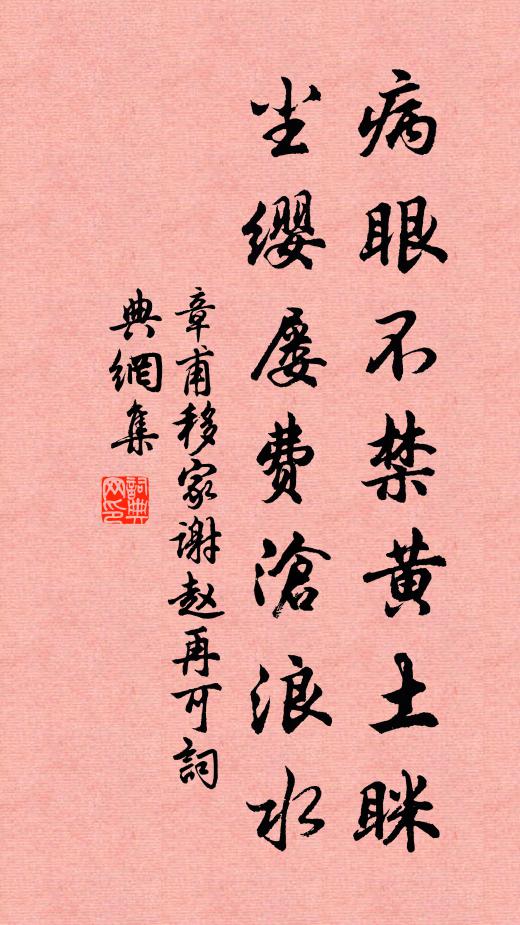 病眼不禁黄土眯
尘缨屡费滄浪水
章甫移家谢赵再可詞
典網集
詞典网印